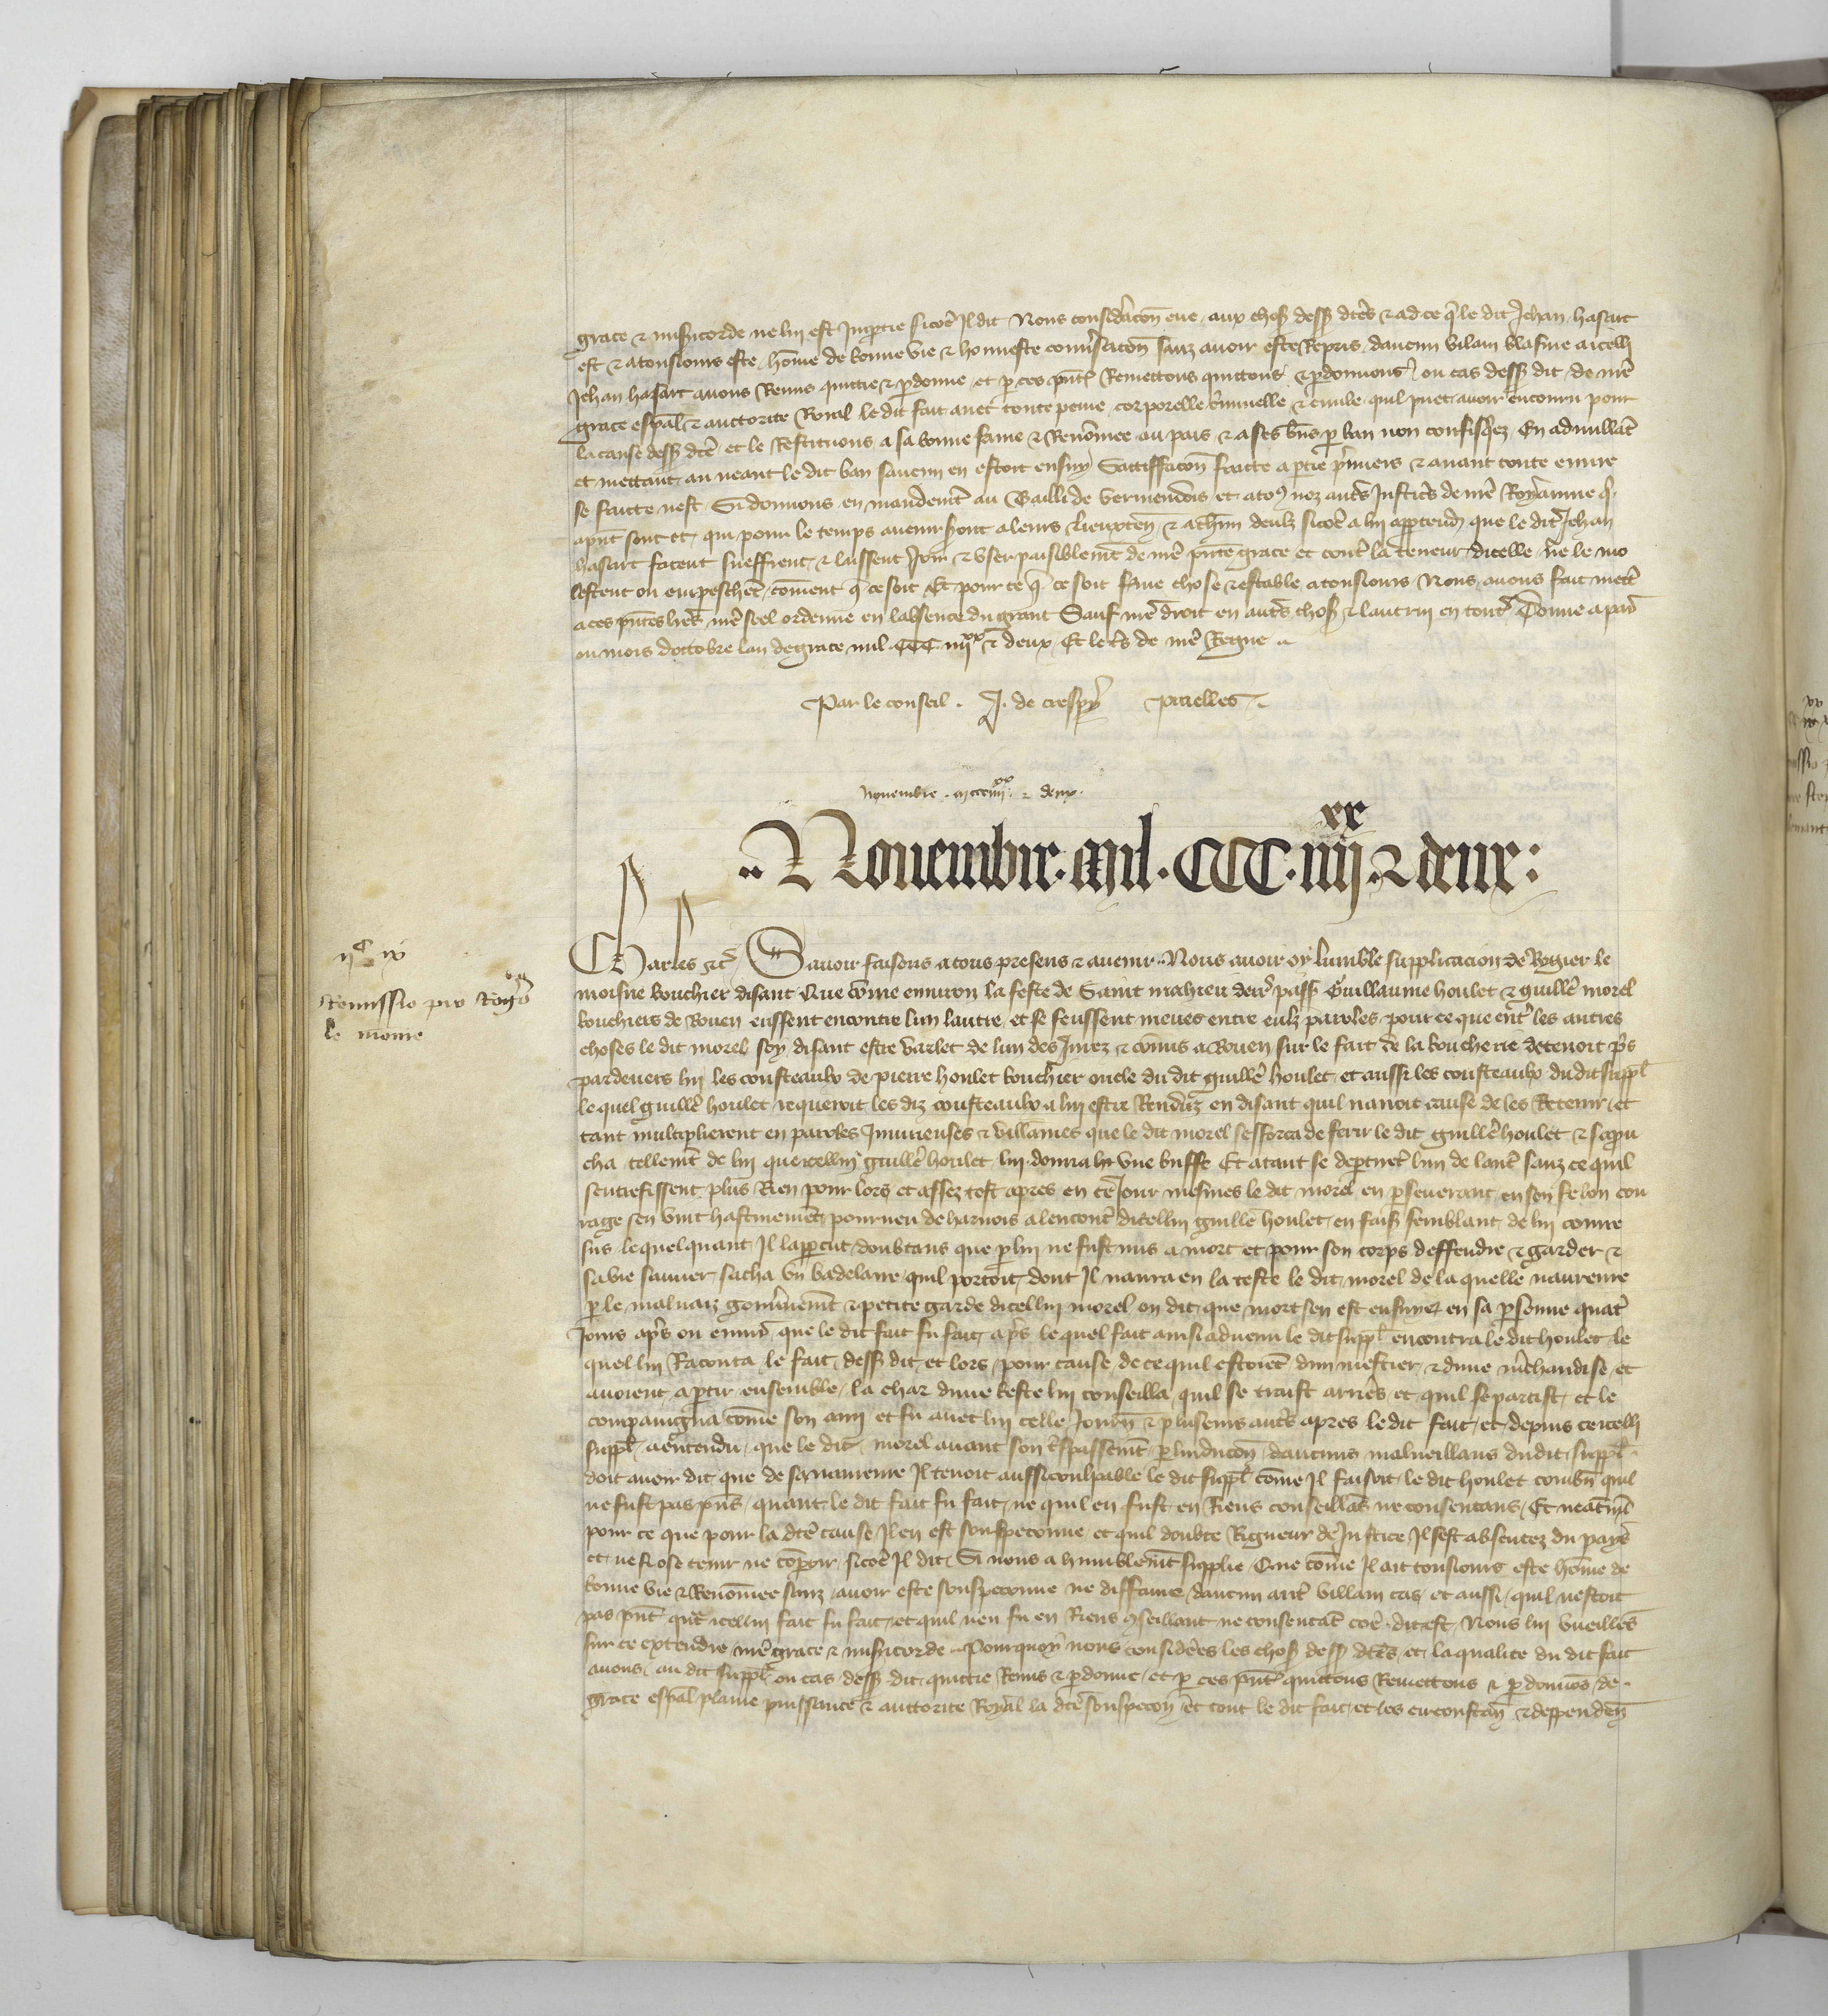 grace & misericorde ne lui est impartie sicõe Il dit Nous consideracõn eue aux choses dessus dctes & ad ce q̃ le dit Jehan hasart
est & a tousiours este hõme de bonne vie & honneste conuersacõn sanz auoir este Repris daucun vilain blasme a icelli
Jehan hasart auons Remis quittie & pdonne et p ces pñtes Remettons quittons & pdonnons ou cas dessus dit de nr̃e
grace espãl & auctorite Roial le dit fait auec toute peine corporelle criminelle & ciuile quil puet auoir encouru pour
la cause dessus dcte et le Restituons a sa bonne fame & Renõmee au pais & a ses biens p ban non confisquez En adnullãt
et mettant au neant le dit ban saucun en estoit ensuy Satisffacõn faicte a ptie premiers & auant toute euure
se faicte nest Si donnons en mandemẽt au Bailli de vermendois et a tous noz autres Justiciers de nr̃e Royaume qui
a pñt sont et qui pour le temps auenir seront a leurs lieuxten & a chũn deulz sicõe a lui apptendra que le dit Jehan
hasart facent sueffrent & laissent Joir & vser paisiblemẽt de nr̃e pñte grace et contre la teneur dicelle ne le mo
lestent ou empeschẽt cõment q̃ ce soit Et pour ce q̃ ce soit ferme chose & estable a tousiours Nous auons fait mettre
a ces pñtes lrẽs nr̃e seel ordenne en labsence du grant Sauf nr̃e droit en autres choses & lautrui en toutes Donne a paris
ou mois doctobre lan de grace mil CCC iiij xx & deux Et le tiers de nr̃e Regne
Par le conseil . J. de crespy
Nouembre . mccciiij xx & deux.
Nouembre . Mil . CCC . iiij xx . & deux :
ij c ix
Remissio pro Rogero
le moine
Charles &c̃ Sauoir faisons a tous presens & auenir Nous auoir oy lumble supplicacion de Rogier le
moisne bouchier disant Que cõme enuiron la feste de Saint mahieu derr passe Guillaume houlet & guillẽ morel
bouchiers de Rouen eussent encontre lun lautre et se feussent meues entre eulz paroles pour ce que entre les autres
choses le dit morel soy disant estre varlet de lun des Jurez & cõmis a Rouen sur le fait de la boucherie detenoit p̃s
pardeuers lui les cousteaulx de pierre houlet bouchier oncle du dit guillẽ houlet et aussi les cousteaulx du dit suppl
le quel guillẽ houlet requeroit les diz cousteaulx a lui estre Renduz en disant quil nauoit cause de les Retenir et
tant multiplierent en paroles Iniurieuses & villaines que le dit morel sefforca de ferir le dit guillẽ houlet & sapru
cha tellemẽt de lui que icellui guillẽ houlet lui donna vne buffe Et atant se departirẽt lun de lautre sanz ce quil
sentrefissent plus Rien pour lors et assez tost apres en ce Jour mesmes le dit morel en pseuerant en son felon cou
rage sen vint hastiuemẽt pourueu de harnois alencontre dicellui guillẽ houlet en faisant semblant de lui courre
sus lequel quant Il lappercut doubtans que p lui ne fust mis a mort et pour son corps deffendre & garder &
sa vie sauuer sacha vn badelaire quil portoit dont Il naura en la teste le dit morel de la quelle naureure
p le mauuaiz gouuernemẽt & petite garde dicellui morel on dit que mort sen est ensuyuy en sa psonne quatre
Jours apres ou enuiron que le dit fait fu fait apres lequel fait ainsi aduenu le dit suppl encontra le dit houlet le
quel lui Raconta le fait dessus dit et lors pour cause de ce quil estoiẽt dun mestier & dune mchandise et
auoient a ptir ensemble la char dune beste lui conseilla quil se traist arriere et quil se partist et le
compaingna cõme son ami et fu auec lui celle Journee & plusieurs autres apres le dit fait et depuis ce icelli
suppl a entendu que le dit morel auant son trespassemẽt p linducõn daucuns malueillans du dit suppl
doit auoir dit que de sa naureure Il tenoit aussi coulpable le dit suppl cõme Il faisoit le dit houlet combn quil
ne fust pas pñs quant le dit fait fu fait ne quil en fust en Riens conseillãt ne consentans Et neãtmĩs
pour ce que pour la dcte cause Il en est souspeconne et quil doubte Rigueur de Justice Il sest absentez du pays
et ne si ose tenir ne cõparoir sicõe Il dit Si nous a humblemẽt supplie Que cõme Il ait tousiours este hõme de
bonne vie & Renõmee sanz auoir este souspeconne ne diffame daucun autre villain cas et aussi quil nestoit
pas pñt quãt icellui fait fu fait et quil nen fu en Riens cõseillant ne consentãt cõe dit est Nous lui vueilles
sur ce extendre nr̃e grace & misericorde Pourquoy nous considerees les choses dessus dctes et la qualite du dit fait
auons au dit suppl ou cas dessus dit quittie Remis & pdonne et p ces pñtes quittons Remettons & pdonnõs de
grace espãl plaine puissance & auctorite Royal la dcte souspecon et tout le dit fait et les circonstan & deppendẽ